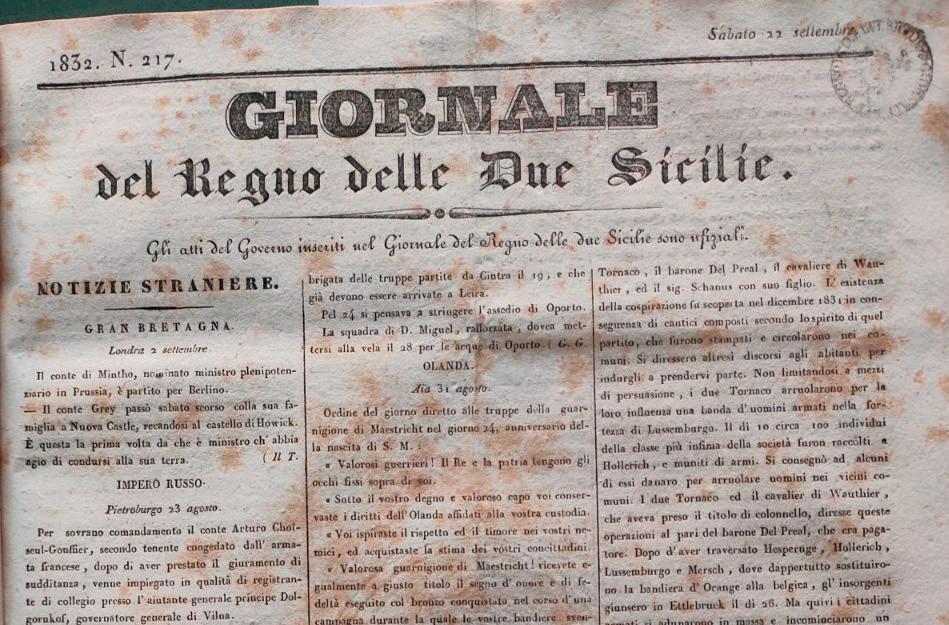 1832. N. 217.
Sabato 22 settembre
GIORNALE
del Regno delle Due Sicilie.
Gli atti del Governo inseriti nel Giornale del Regno delle due Sicilie sono ufiziali.
NOTIZIE STRANIERE.
GRAN BRETAGNA.
Londra 2 settembre
Il conte di Mintho, nominato ministro plenipoten-
ziario in Prussia, è partito per Berlino.
— Il conte Grey passò sabato scorso colla sua fa-
miglia a Nuova Castle, recandosi al castello di Howick.
È questa la prima volta da che è ministro ch' abbia
agio di condursi alla sua terra. ( Il T.
IMPERO RUSSO.
Pietroburgo 23 agosto.
Per sovrano comandamento il conte Arturo Choi-
seul-Gouffier, secondo tenente congedato dall' arma-
ta francese, dopo di aver prestato il giuramento di
sudditanza, venne impiegato in qualità di registran-
te di collegio presso l' aiutante generale principe Dol-
gorukof, governatore generale di Vilna.
brigata delle truppe partite da Cintra il 19, e che
già devono essere arrivate a Leira.
Pel 24 si pensava a stringere l'assedio di Oporto.
La squadra di D. Miguel, rafforzata, dovea met-
tersi alla vela il 28 per le acque di Oporto ( G. G.
OLANDA.
Aia 31 agosto.
Ordine del giorno diretto alle truppe della guar-
nigione di Maestricht nel giorno 24, anniversario del-
la nascita di S. M. :
« Valorosi guerrieri! Il Re e la patria tengono gli
occhi fissi sopra di voi.
« Sotto il vostro degno e valoroso capo voi conser-
vaste i diritti dell'Olanda affidati alla vostra custodia.
« Voi ispiraste il rispetto ed il timore nei vostri ne-
mici, ed acquistaste la stima dei vostri concittadini.
« Valorosa guarnigione di Maestricht! ricevete e-
gualmente a giusto titolo il segno d'onore e di fe-
deltà eseguito col bronzo conquistato nel corso d'una
campagna durante la quale le vostre bandiere sven-
Tornaco, il barone Del Preal, il cavaliere di Wau-
thier, ed il sig. Schanus con suo figlio. L'esistenza
della cospirazione fu scoperta nel dicembre 1831 in con-
seguenza di cantici composti secondo lo spirito di quel
partito, che furono stampati e circolarono nei co-
muni. Si diressero altresì discorsi agli abitanti per
indurgli a prendervi parte. Non limitandosi a mezzi
di persuasione, i due Tornaco arruolarono per la
loro influenza una banda d'uomini armati nella for-
tezza di Lussemburgo. Il dì 10 circa 100 individui
della classe più infima della società furon raccolti a
Hollerich, e muniti di armi. Si consegnò ad alcuni
di essi danaro per arruolare uomini nei vicini co-
muni. I due Tornaco ed il cavalier di Wauthier,
che aveva preso il titolo di colonnello, diresse queste
operazioni al pari del barone Del Preal, che era paga-
tore. Dopo d'aver traversato Hesperuge, Hollerich,
Lussemburgo e Mersch, dove dappertutto sostituiro-
no la bandiera d'Orange alla belgica, gl' insorgenti
giunsero in Ettlebruck il dì 26. Ma quivi i cittadini
armati si adunarono in massa e incominciarono un